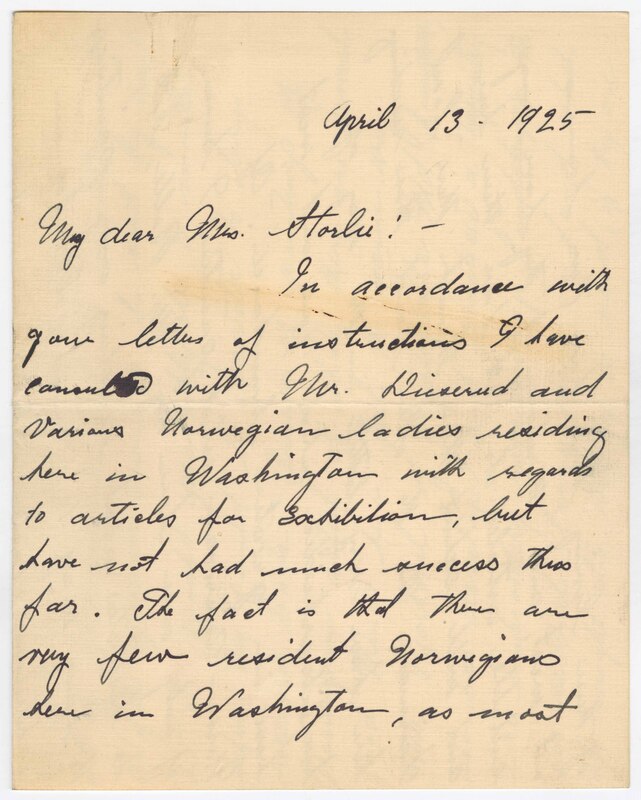 April 13 - 1925
My dear Mrs. Storlie! -
In accordance with
your letter of instructions I have
consulted with Mr. Dieserud and
various Norwegian ladies residing
here in Washington with regards
to articles for Exhibition, but
have not had much success thus
far. The fact is that there are
very few resident Norwegians
here in Washington, as most